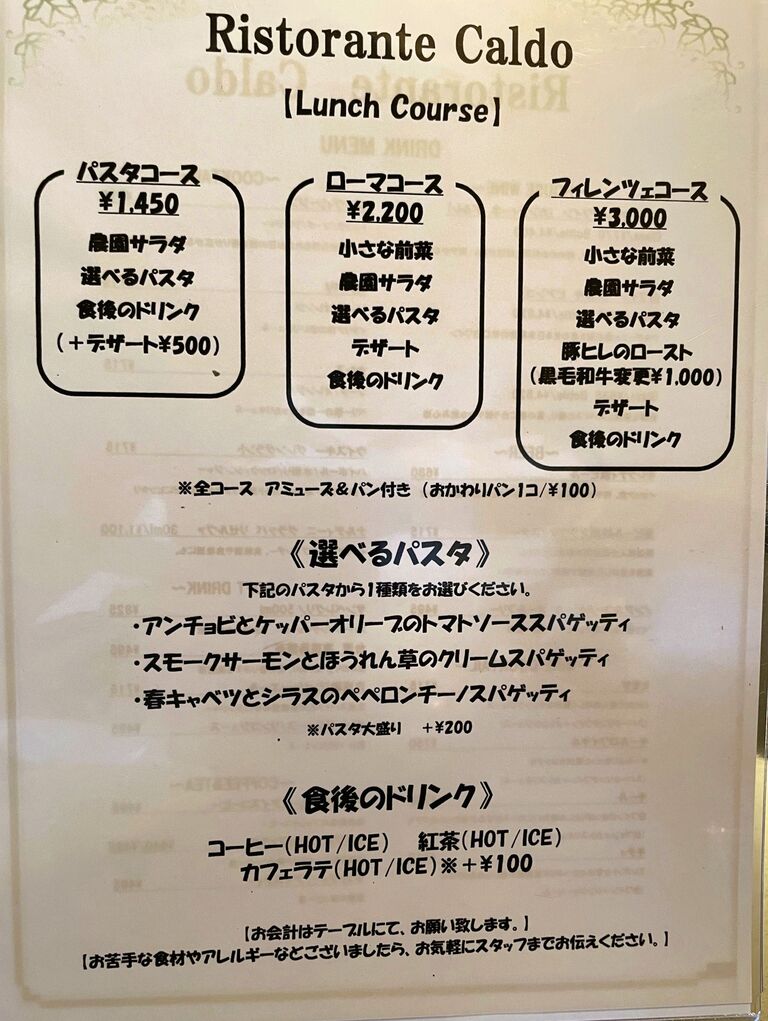 Ristorante Caldo
【Lunch Course】
パスタコース
¥1,450
農園サラダ
選べるパスタ
食後のドリンク
(+デザート¥500)
ローマコース
¥2,200
小さな前菜
農園サラダ
選べるパスタ
デザート
食後のドリンク
フィレンツェコース
¥3,000
小さな前菜
農園サラダ
選べるパスタ
豚ヒレのロースト
(黒毛和牛変更¥1,000)
デザート
食後のドリンク
※全コース アミューズ&パン付き (おかわりパン1コ/¥100)
《選べるパスタ》
下記のパスタから1種類をお選びください。
・アンチョビとケッパーオリーブのトマトソーススパゲッティ
・スモークサーモンとほうれん草のクリームスパゲッティ
・春キャベツとシラスのペペロンチーノスパゲッティ
※パスタ大盛り +¥200
《食後のドリンク》
コーヒー(HOT/ICE) 紅茶(HOT/ICE)
カフェラテ(HOT/ICE)※+¥100
【お会計はテーブルにて、お願い致します。】
【お苦手な食材やアレルギーなどございましたら、お気軽にスタッフまでお伝えください。】